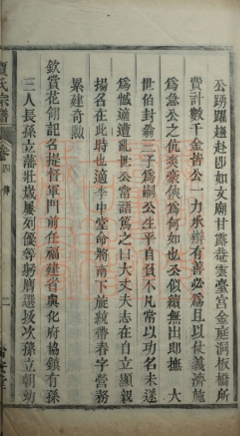 公踴躍趨赴卽如文廟甘露菴靈宮金庭洞板橋所
費計數千金皆公一力承齋有善必爲且以使義濟施
爲急公之伉爽豪俠爲何如也丞似續無出卽撫 大
世伯封翁三子爲嗣公生平自負不凡常以功名未遂
爲憾適遭亂世公常語篤之曰大丈夫志在自立顯親
揚名在此時也適李中堂命將南下旋統帶春字營務
累建奇勲
欽賞花翎記名提督軍門前任福建省興化府協鎮有孫
三人長孫立藩壯歲屢列優等膺選拔次孫立朝幼
賈氏宗譜 卷四傳 二